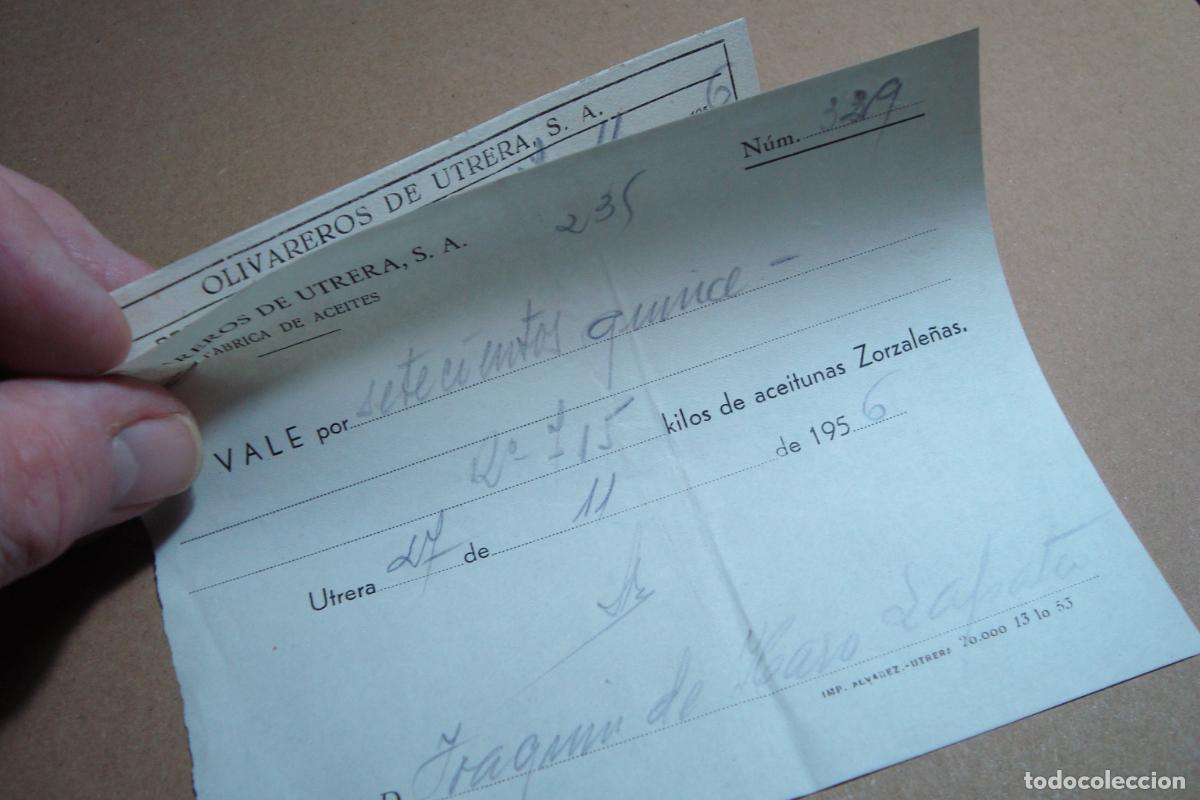 OLIVAREROS DE UTRERA, S. A.
11 195 6
Núm. 329
235
REROS DE UTRERA, S. A.
FABRICA DE ACEITES
VALE por setecientos quince -
715 kilos de aceitunas Zorzaleñas.
Utrera 27 de 11 de 195 6
D. Joaquin de Haro Zapata
IMP. ALVAREZ.-UTRERA 20.000 13 10 53
todocoleccion